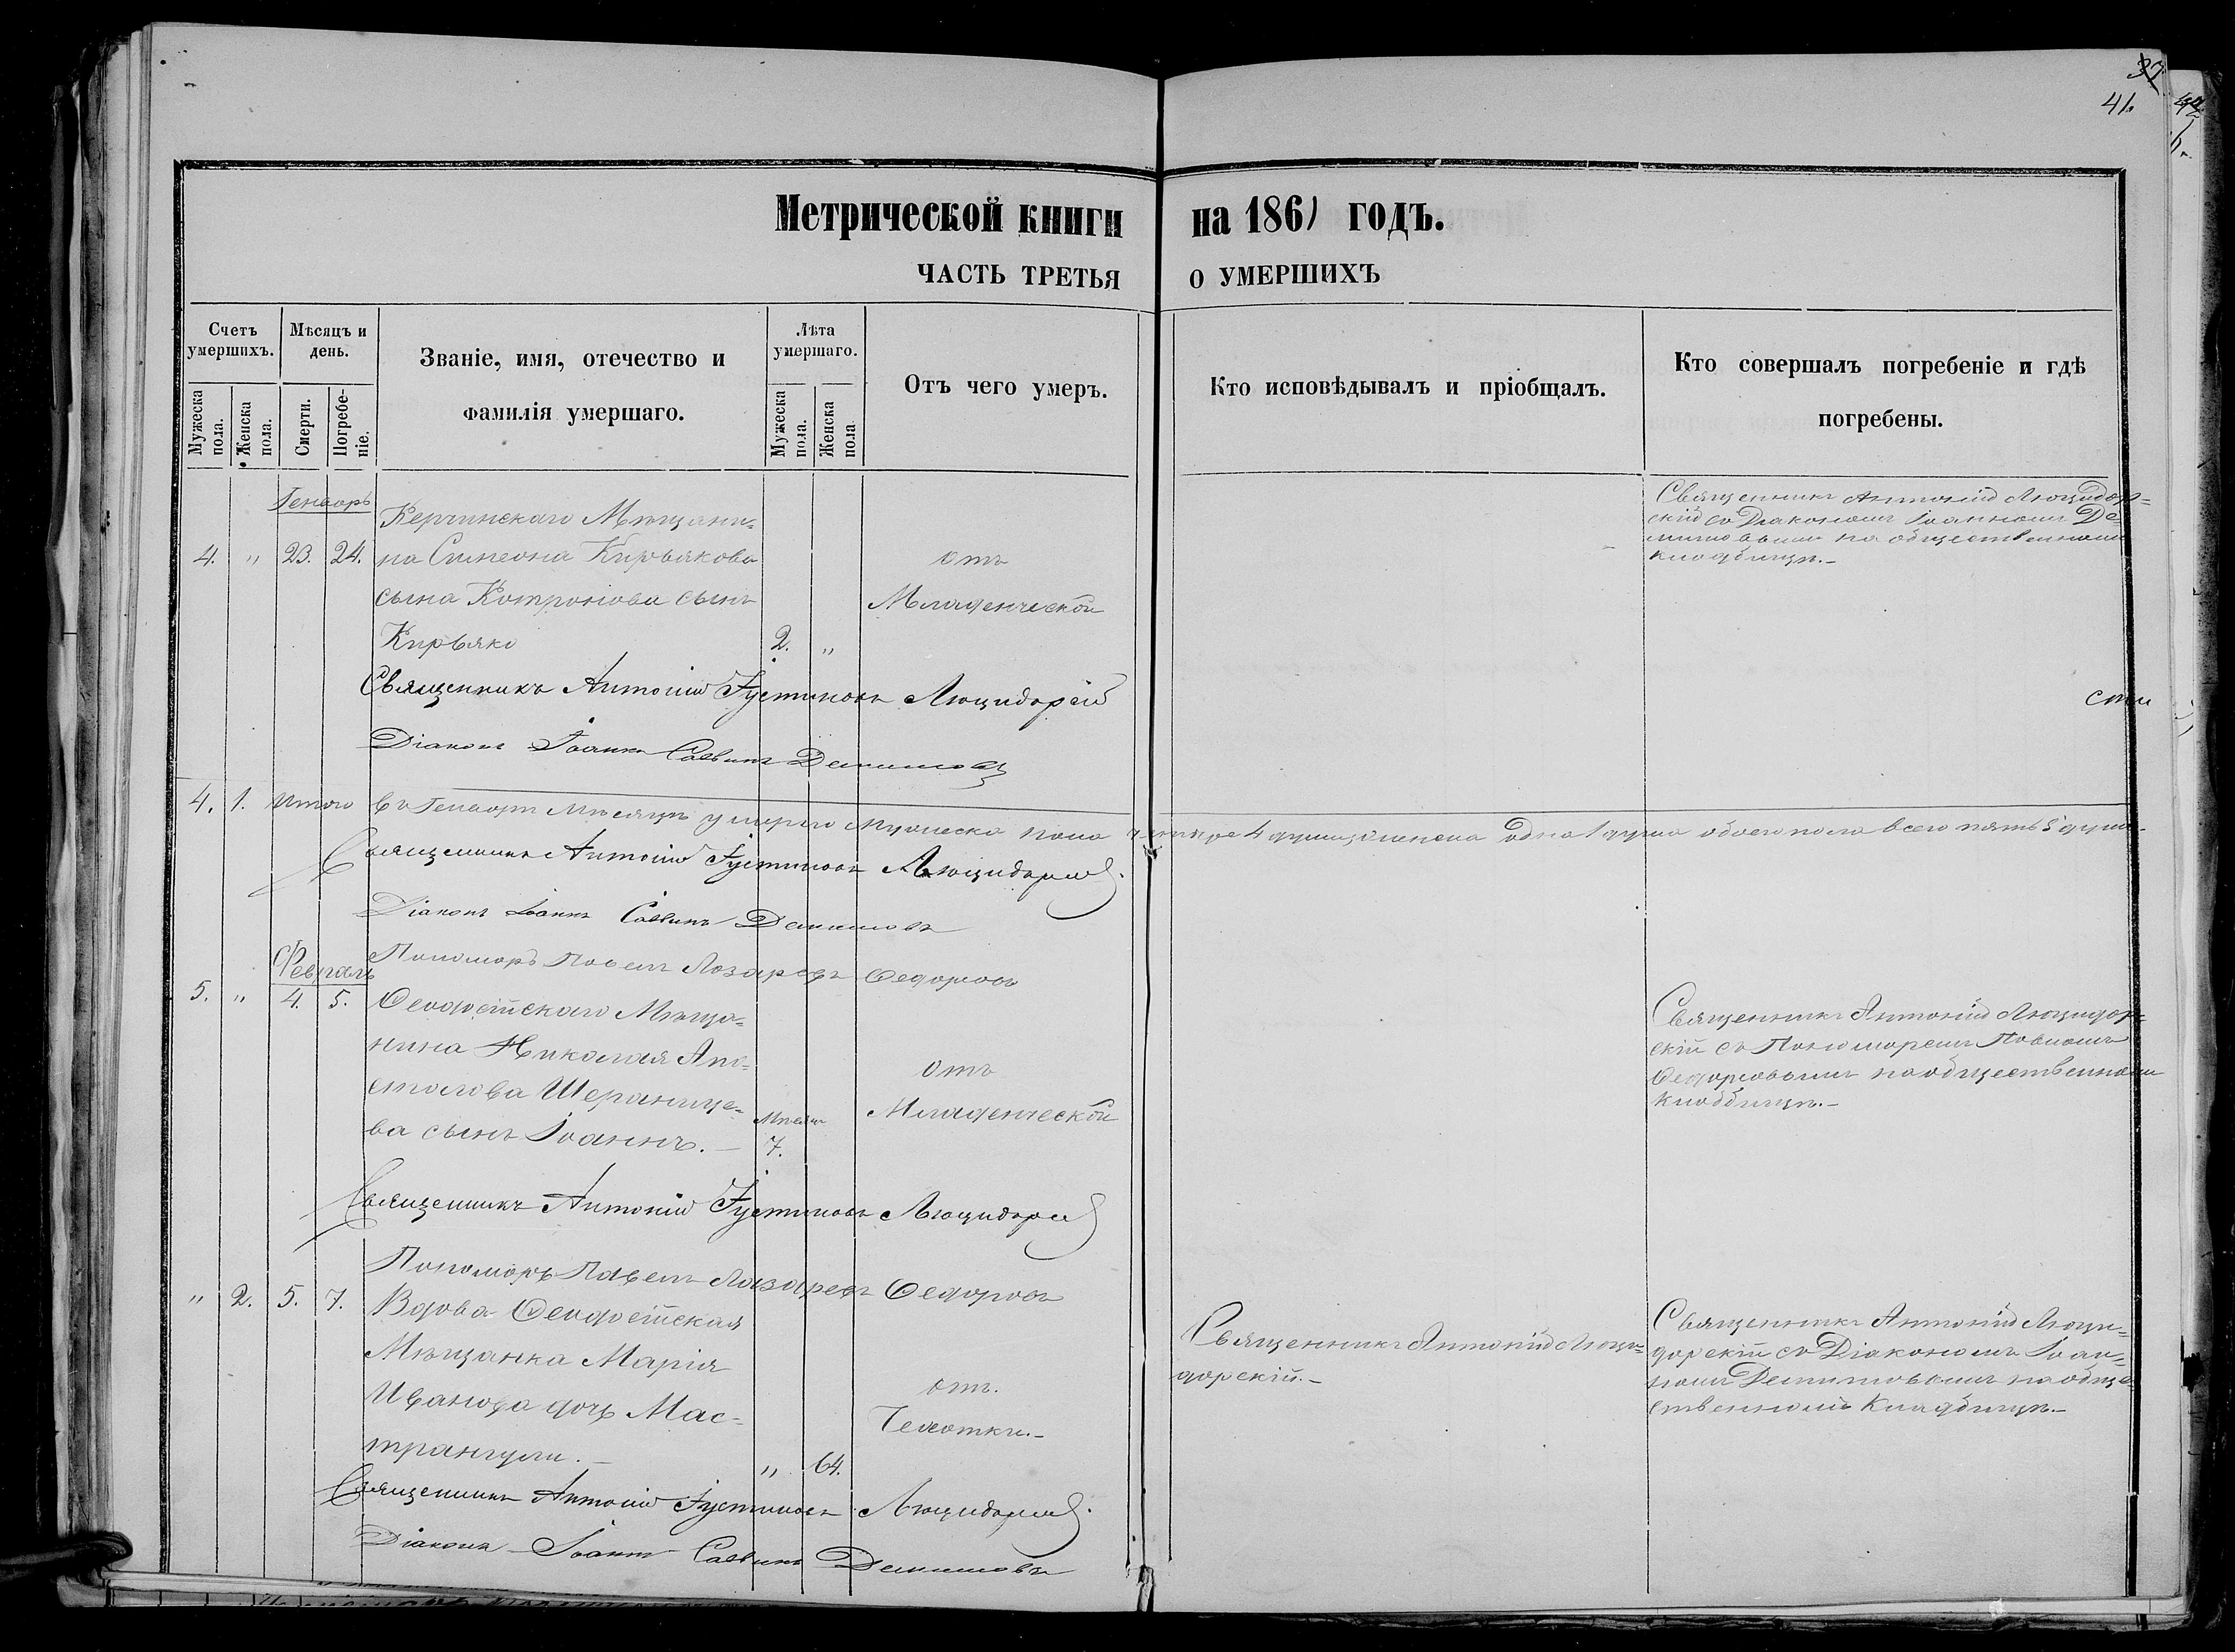 37
41.
Метрической книги на 1861 годъ.
ЧАСТЬ ТРЕТЬЯ О УМЕРШИХЪ
Счетъ умершихъ.
Мѣсяцъ и день.
Званіе, имя, отечество и
фамилія умершаго.
Лѣта умершаго.
Отъ чего умеръ.
Кто исповѣдывалъ и пріобщалъ.
Кто совершалъ погребеніе и гдѣ
погребены.
Мужеска пола.
Женска пола.
Смерти.
Погребеніе.
Мужеска пола.
Женска пола
Генваръ
4. " 23. 24.
Керчинскаго Мѣщани-
на Симеона Кирьякова
сына Котроніова сынъ
Кирьяко
2. "
отъ
Младенческой
Священникъ Антоній Люцидор-
скій съ Діакономъ Іоанномъ Де-
мимовымъ на общественномъ
кладбищѣ.-
Священникъ Антоній Іустиновъ Люцидорскій
Діаконъ Іоаннъ Саввинъ Демимовъ
сти
4. 1. Итого въ Генварѣ мѣсяцѣ умерло мужеска пола четыре 4 души женска одна 1 душа обоего пола всего пять 5 душъ.
Священникъ Антоній Іустиновъ Люцидорскій.
Діаконъ Іоаннъ Саввинъ Демимовъ
Пономаръ Павелъ Лазаревъ Ѳедоровъ
Февраль
5. " 4. 5.
Ѳеодосійскаго Мѣща-
нина Николая Апо-
столова Шеранице-
ва сынъ Іоаннъ.-
Мѣсяц
7.
отъ
Младенческой
Священникъ Антоній Люцидор-
скій съ Пономаремъ Павломъ
Ѳедоровымъ на общественномъ
кладбищѣ.-
Священникъ Антоній Іустиновъ Люцидорскій
Пономаръ Павелъ Лазаревъ Ѳедоровъ
" 2. 5. 7.
Вдова Ѳеодосійская
Мѣщанка Марія
Иванова дочь Мас-
трангули.-
" 64.
отъ.
Чехотки.-
Священникъ Антоній Люци-
дорскій.-
Священникъ Антоній Люци-
дорскій съ Діакономъ Іоан-
номъ Демимовымъ на обще-
ственномъ Кладбищѣ.-
Священникъ Антоній Іустиновъ Люцидорскій.
Діаконъ Іоаннъ Саввинъ Демимовъ